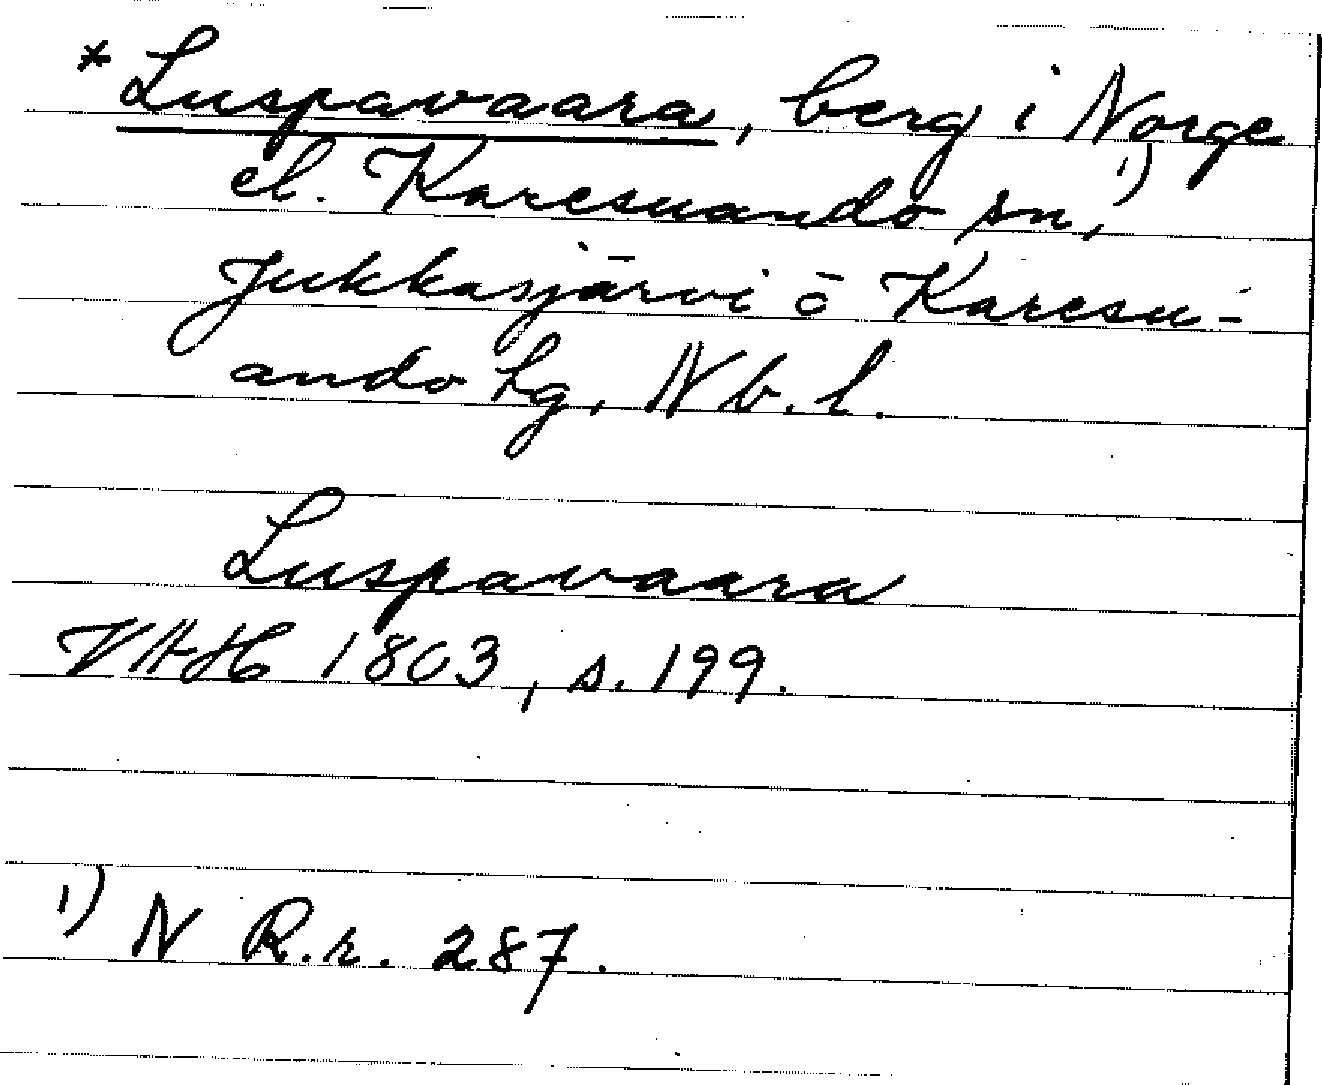 * Luspavaara, berg i Norge
el. Karesuando sn,¹)
Jukkasjärvi o Karesu-
ando lg, Nb. l.
Luspavaara
VAH 1803, s. 199.
¹) N R.r. 287.